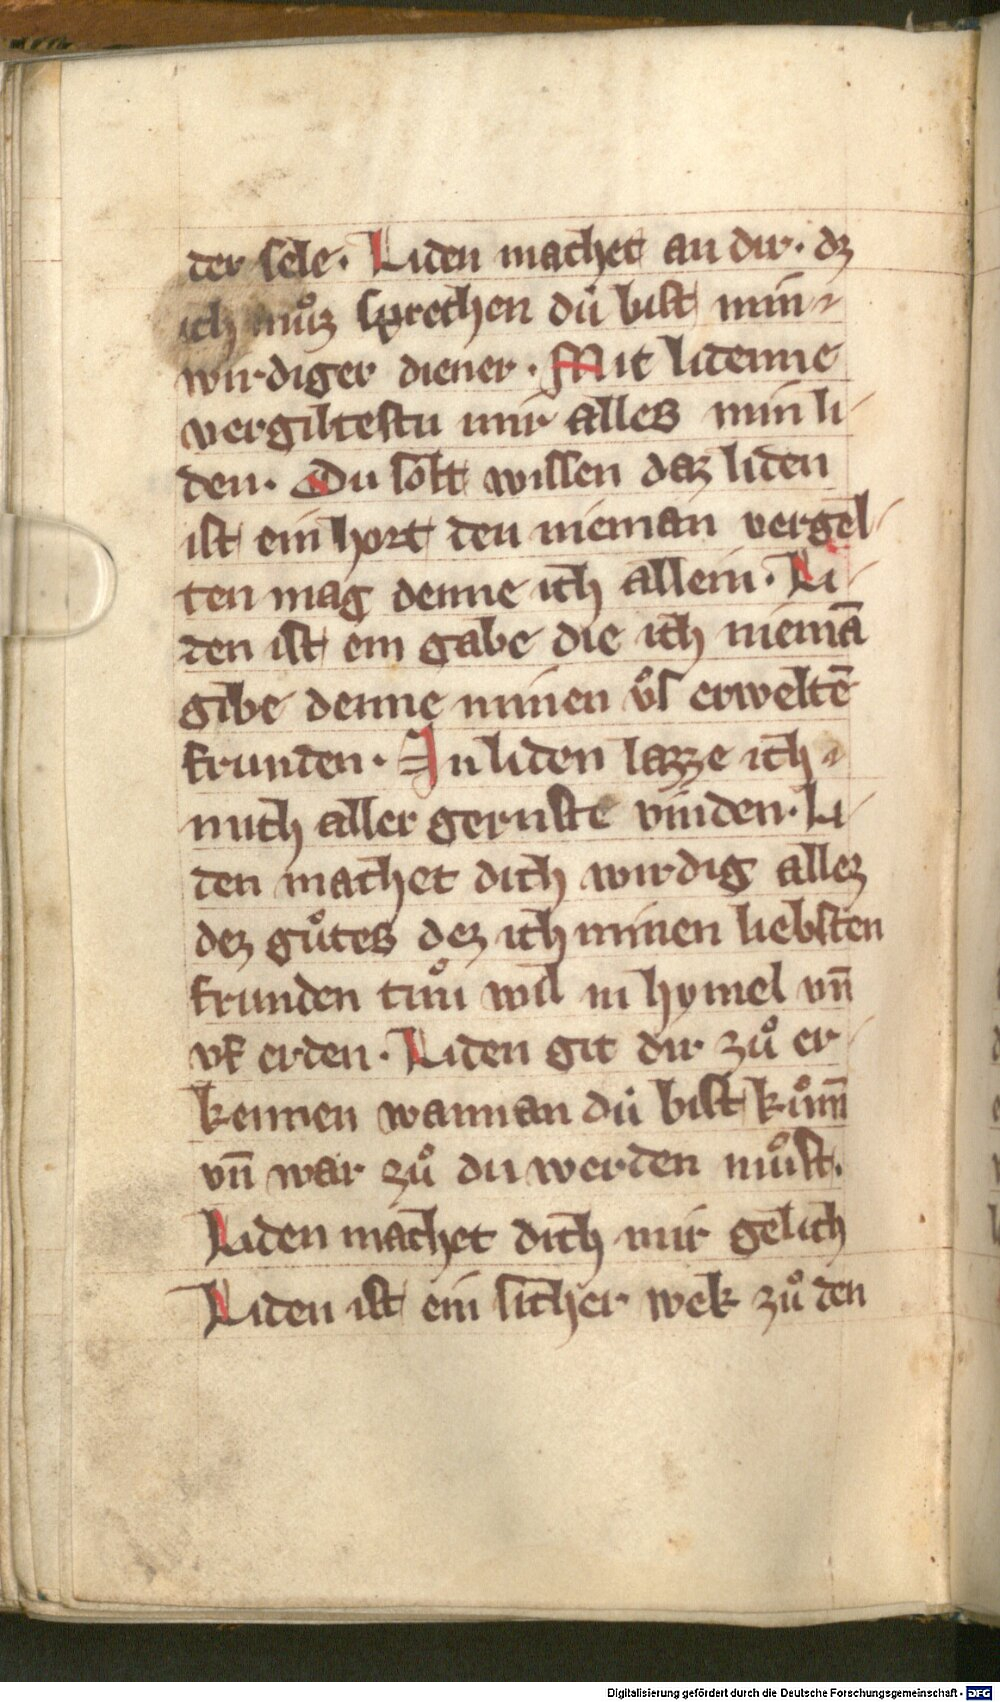 der sele. Liden machet an dir. dz
ich můz sprechen dů bist min
wirdiger diener. Mit lidenne
vergiltestu mir alles min li-
den. Du solt wissen daz liden
ist ein hort den nieman vergel-
ten mag denne ich allein. Li-
den ist ein gabe die ich niemā
gibe denne minen vͦs erweltē
frunden. In liden lazze ich
mich aller gernste vinden. Li-
den machet dich wirdig allez
dez gůtes dez ich minen liebsten
frunden tuͦn wil in hymel vn̄
vf erden. Liden git dir zů er-
kennen wannan dů bist kům̄
vn̄ war zů du werden můst.
Liden machet dich mir gelich
Liden ist ein sicher wek zů den
Digitalisierung gefördert durch die Deutsche Forschungsgemeinschaft - DFG